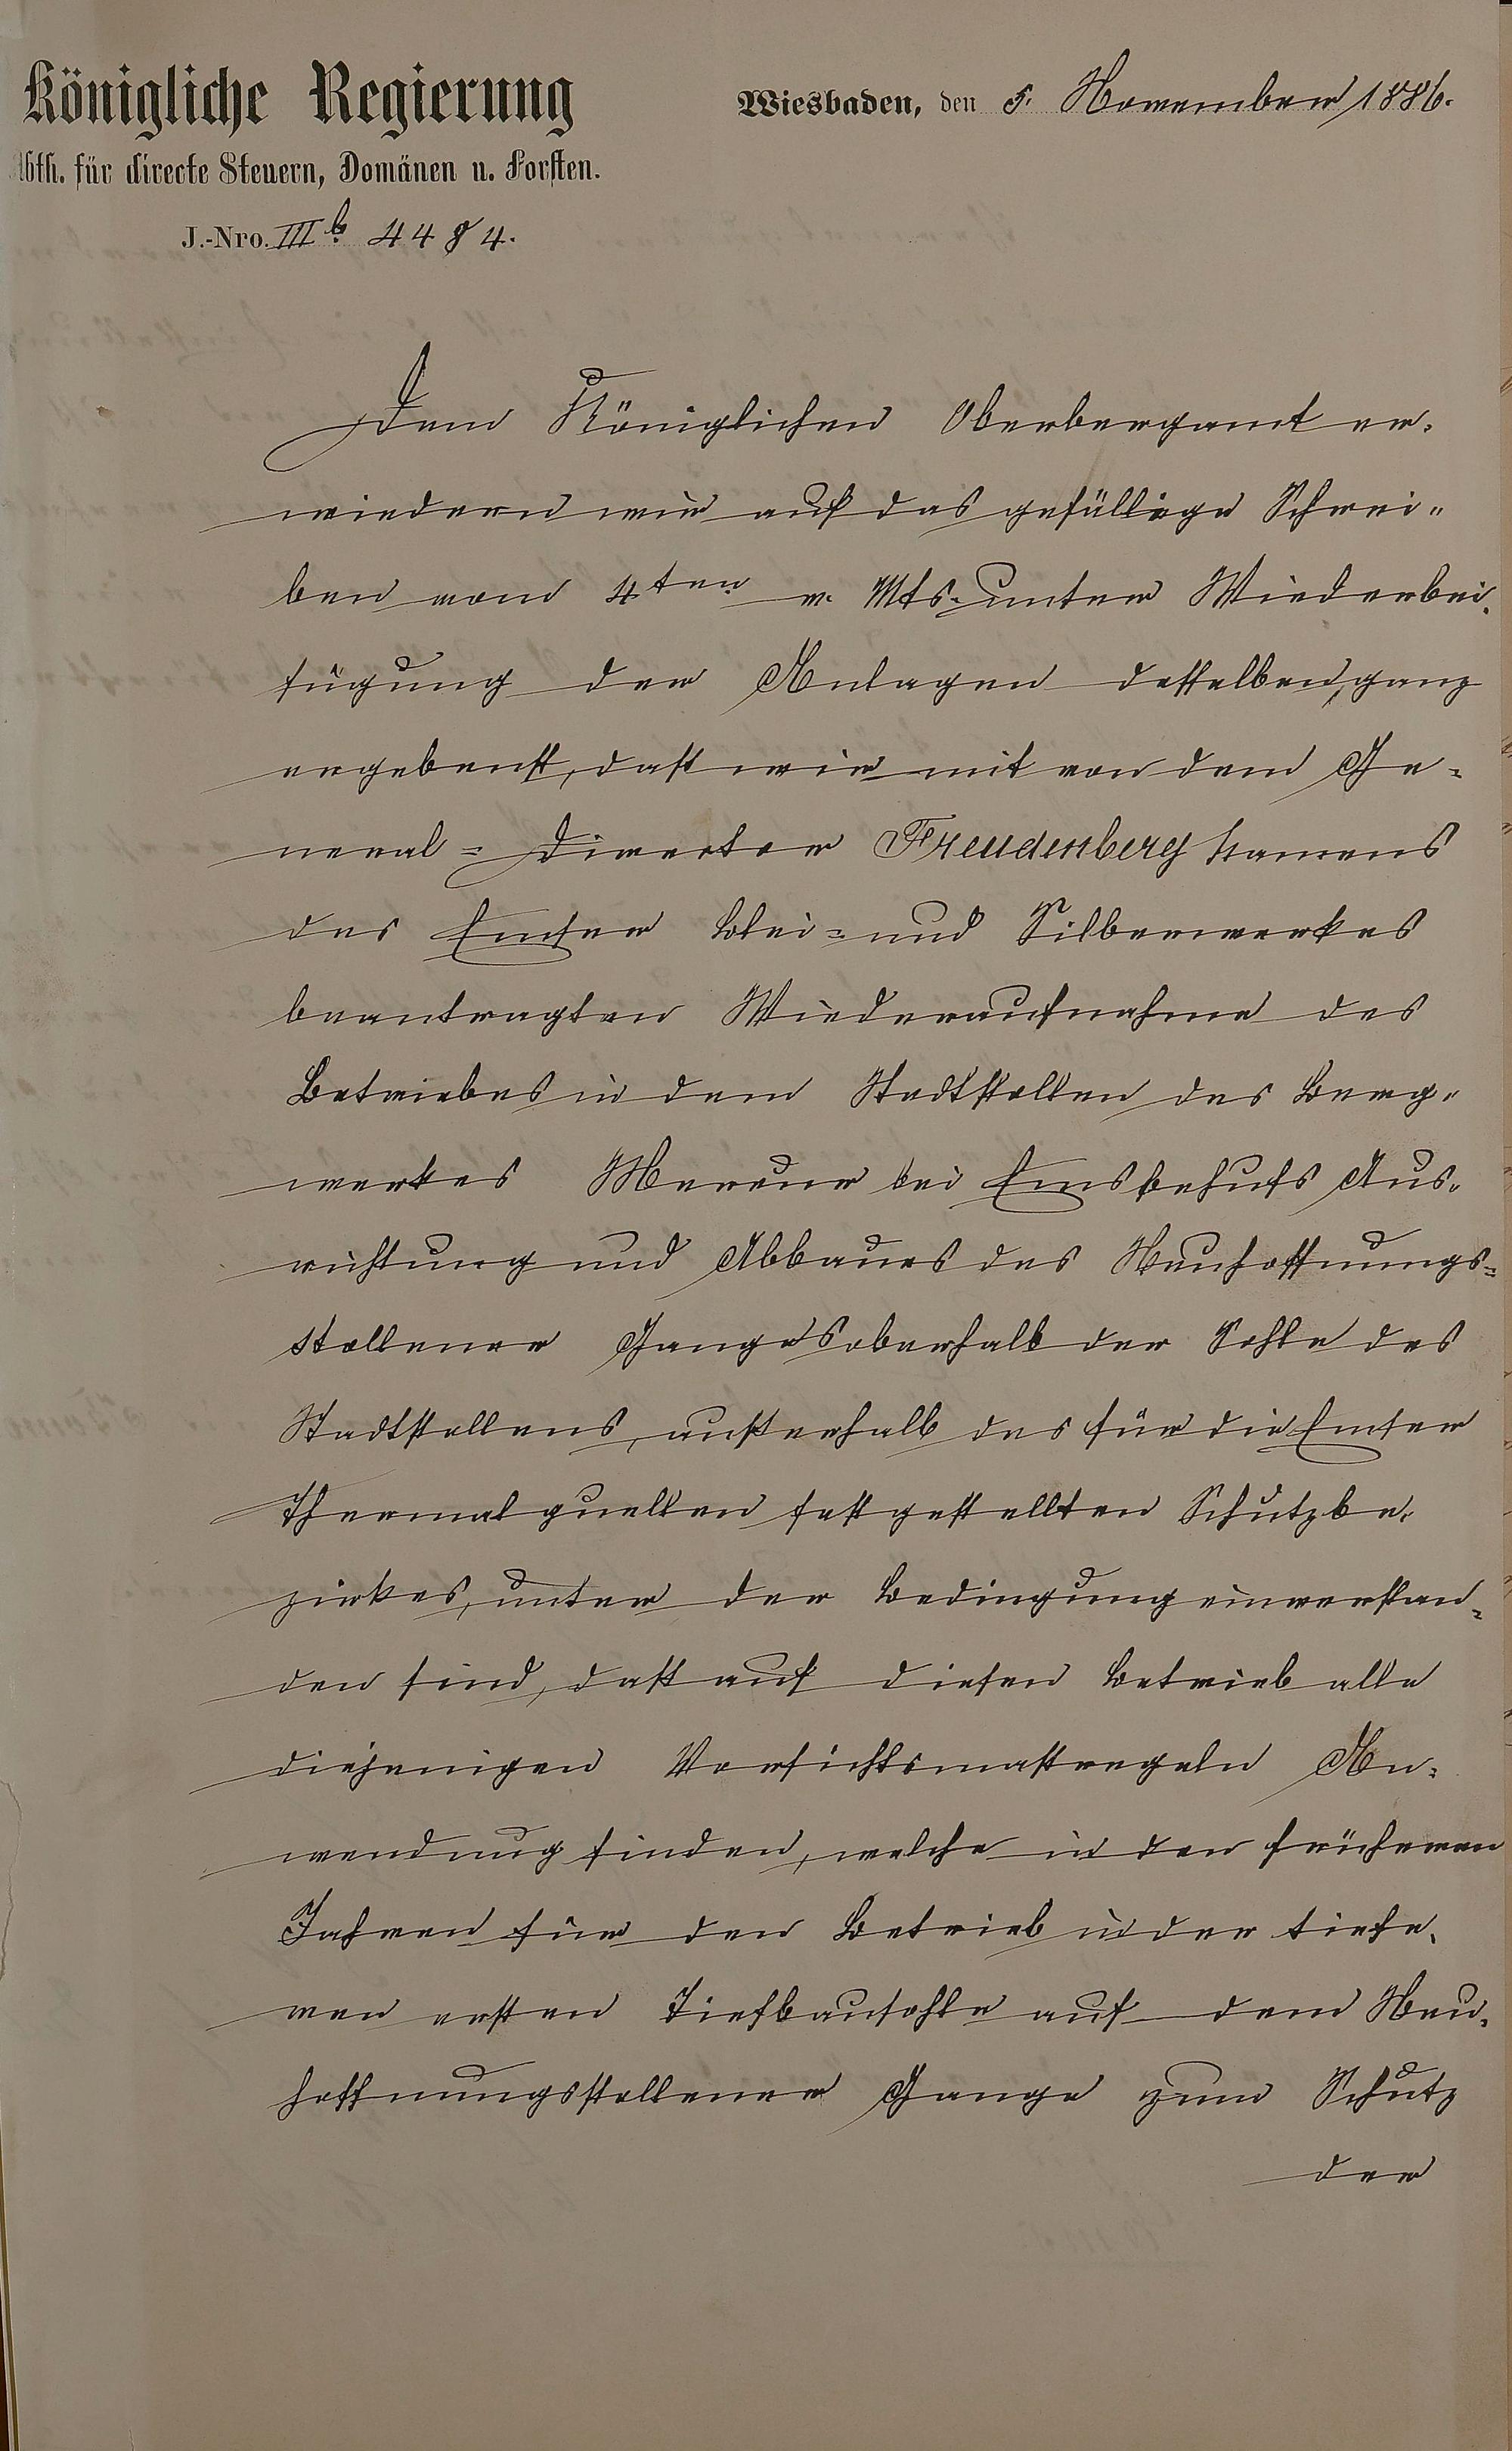 Königliche Regierung
Abth. für directe Steuern, Domänen u. Forsten.
J.-Nro. III b. 4484.
Wiesbaden, den 5. November 1886.
Dem Königlichen Oberbergamt er-
wiedern wir auf das gefällige Schrei-
ben vom 4ten v. Mts. unter Wiederbei-
fügung der Anlagen desselben, ganz
ergebenst, daß wir mit von dem Ge-
neral-Director Freudenberg Namens
des Emser Blei- und Silberwerkes
beantragten Wiederaufnahme des
Betriebes in dem Stadtstollen des Berg-
werkes Mercur bei Ems behufs Aus-
richtung und Abbaues des Neuhoffnungs-
stollener Ganges oberhalb der Sohle des
Stadtstollens, außerhalb des für die Emser
Thermalquellen festgestellten Schutzbe-
zirkes, unter der Bedingung einverstan-
den sind, daß auf diesen Betrieb alle
diejenigen Vorsichtsmaßregeln An-
wendung finden, welche in den früheren
Jahren für den Betrieb in der tiefe-
ren ersten Tiefbausohle auf dem Neu-
hoffnungsstollener Gange zum Schutz
der